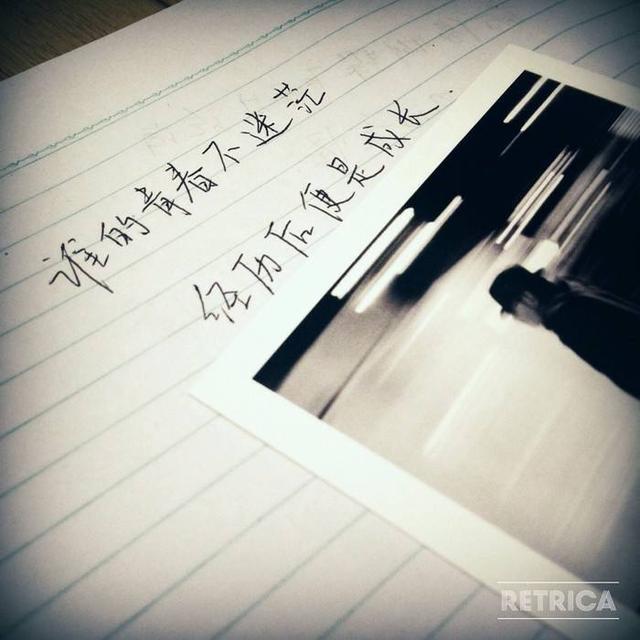 谁的青春不迷茫
经历后便是成长.
RETRICA